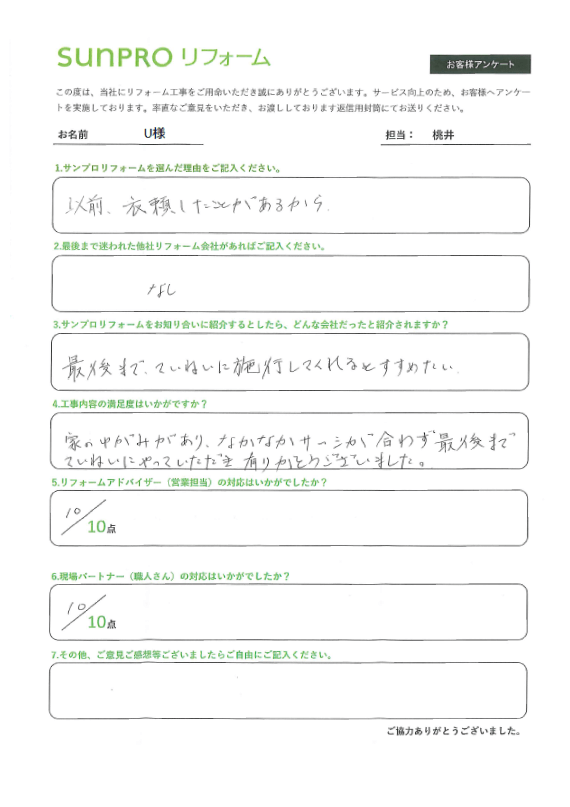 sunpro リフォーム
お客様アンケート
この度は、当社にリフォーム工事をご用命いただき誠にありがとうございます。サービス向上のため、お客様へアンケー
トを実施しております。率直なご意見をいただき、お渡ししております返信用封筒にてお送りください。
お名前 U様 担当： 桃井
1.サンプロリフォームを選んだ理由をご記入ください。
以前、衣頼したことがあるから.
2.最後まで迷われた他社リフォーム会社があればご記入ください。
なし
3.サンプロリフォームをお知り合いに紹介するとしたら、どんな会社だったと紹介されますか？
最後まで、ていねいに施行してくれるとすすめたい.
4.工事内容の満足度はいかがですか？
家のゆがみがあり、なかなかサッシが合わず最後まで
ていねいにやっていただき有りがとうございました。
5.リフォームアドバイザー（営業担当）の対応はいかがでしたか？
10/10点
6.現場パートナー（職人さん）の対応はいかがでしたか？
10/10点
7.その他、ご意見ご感想等ございましたらご自由にご記入ください。
ご協力ありがとうございました。